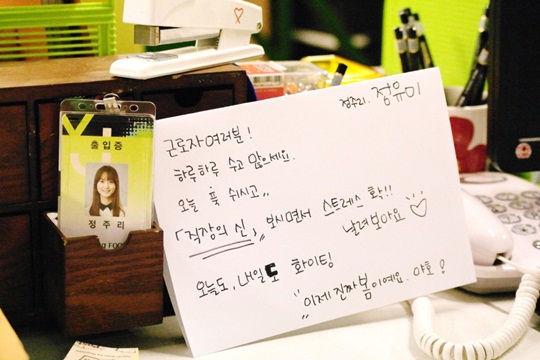 출입증
정주리
정주리. 정유미
근로자여러분!
하루하루 수고 많으세요.
오늘 푹 쉬시고..
「직장의 신」 보시면서 스트레스 확!!
날려보아요
오늘도, 내일도 화이팅!
이제 진짜 봄이예요. 야호!